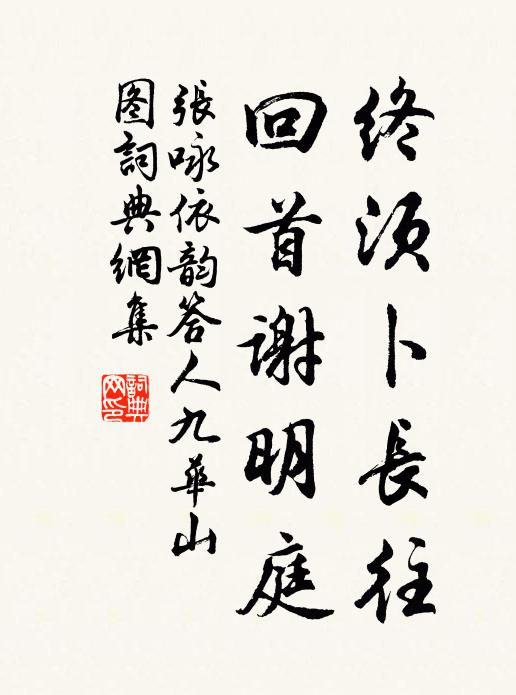 終須卜長往
回首謝明庭
張咏依韵答人九華山
图詞典網集
詞典
网印